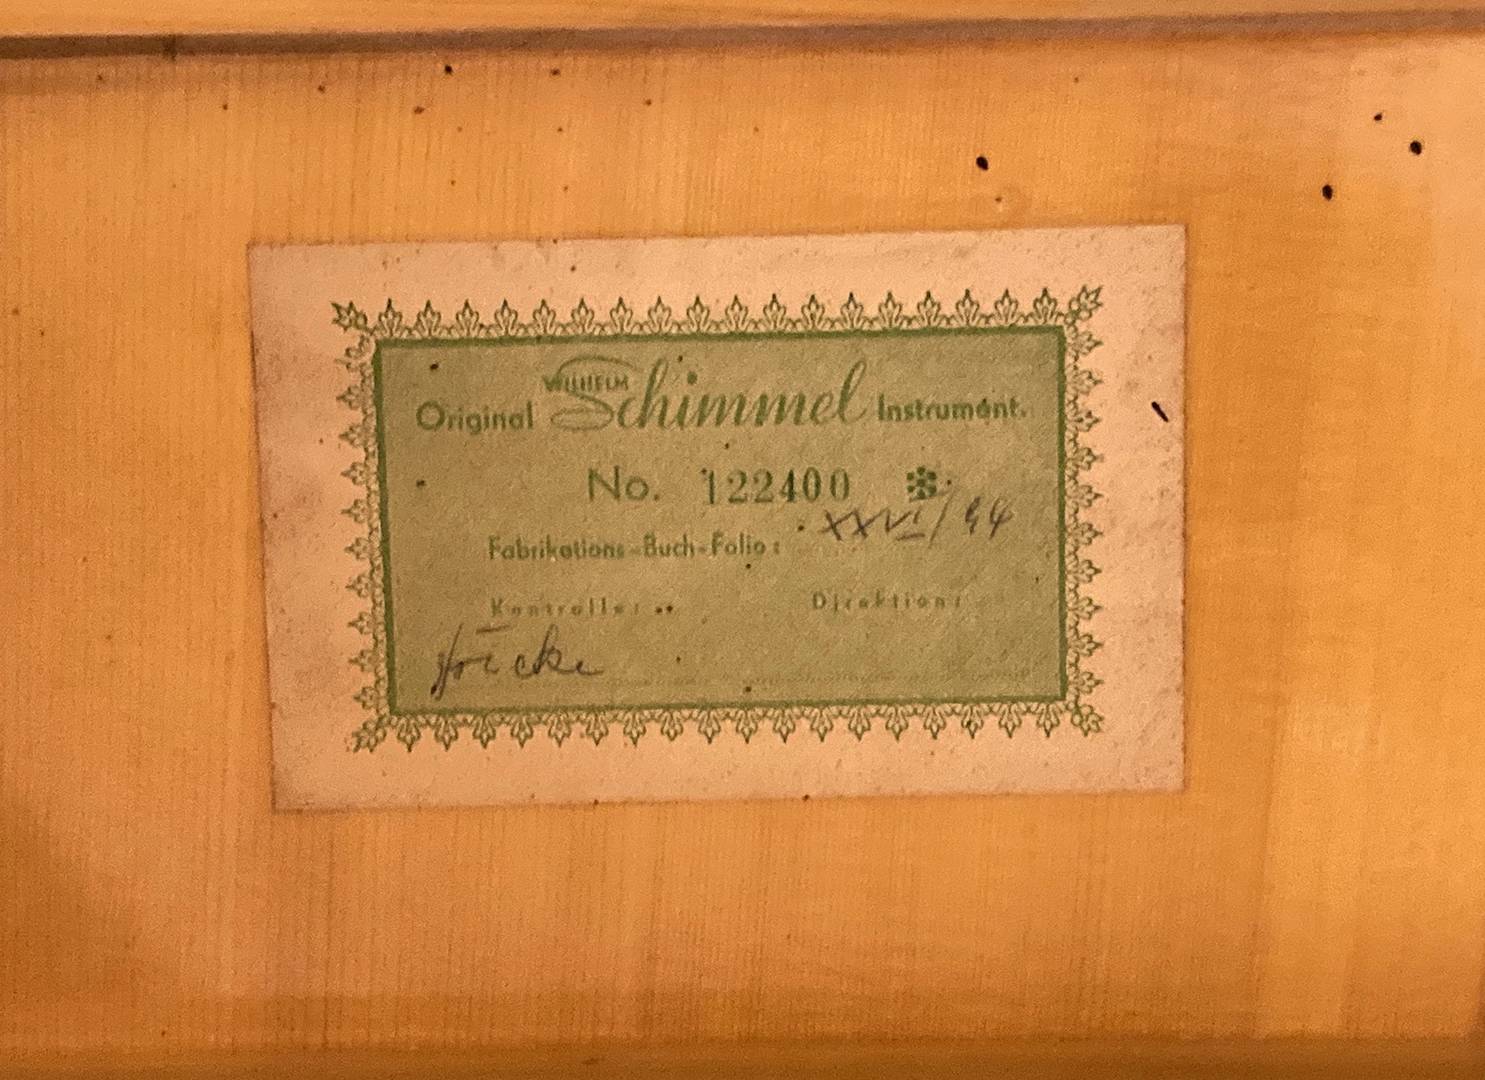 Original WILHELM Schimmel Instrument.
No. 122400
XXVI/44
Fabrikations-Buch-Folio:
Kontrolle: Direktion: